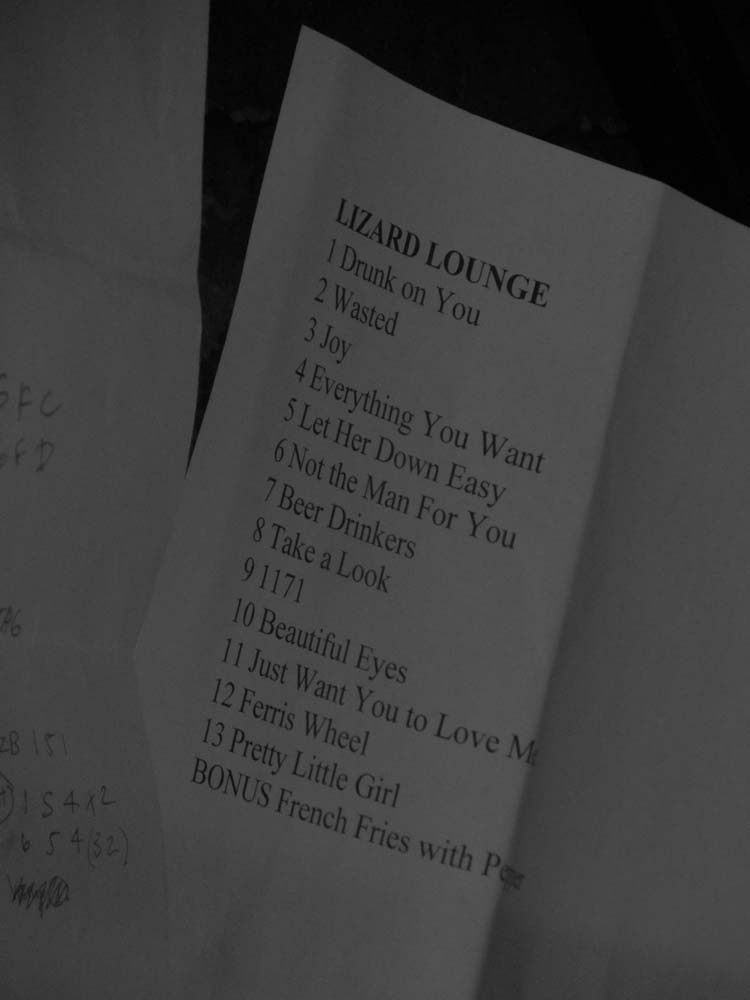 LIZARD LOUNGE
1 Drunk on You
2 Wasted
3 Joy
4 Everything You Want
5 Let Her Down Easy
6 Not the Man For You
7 Beer Drinkers
8 Take a Look
9 1171
10 Beautiful Eyes
11 Just Want You to Love
12 Ferris Wheel
13 Pretty Little Girl
BONUS French Fries with
FC
FD
151
1 5 4 x2
6 5 4 (32)